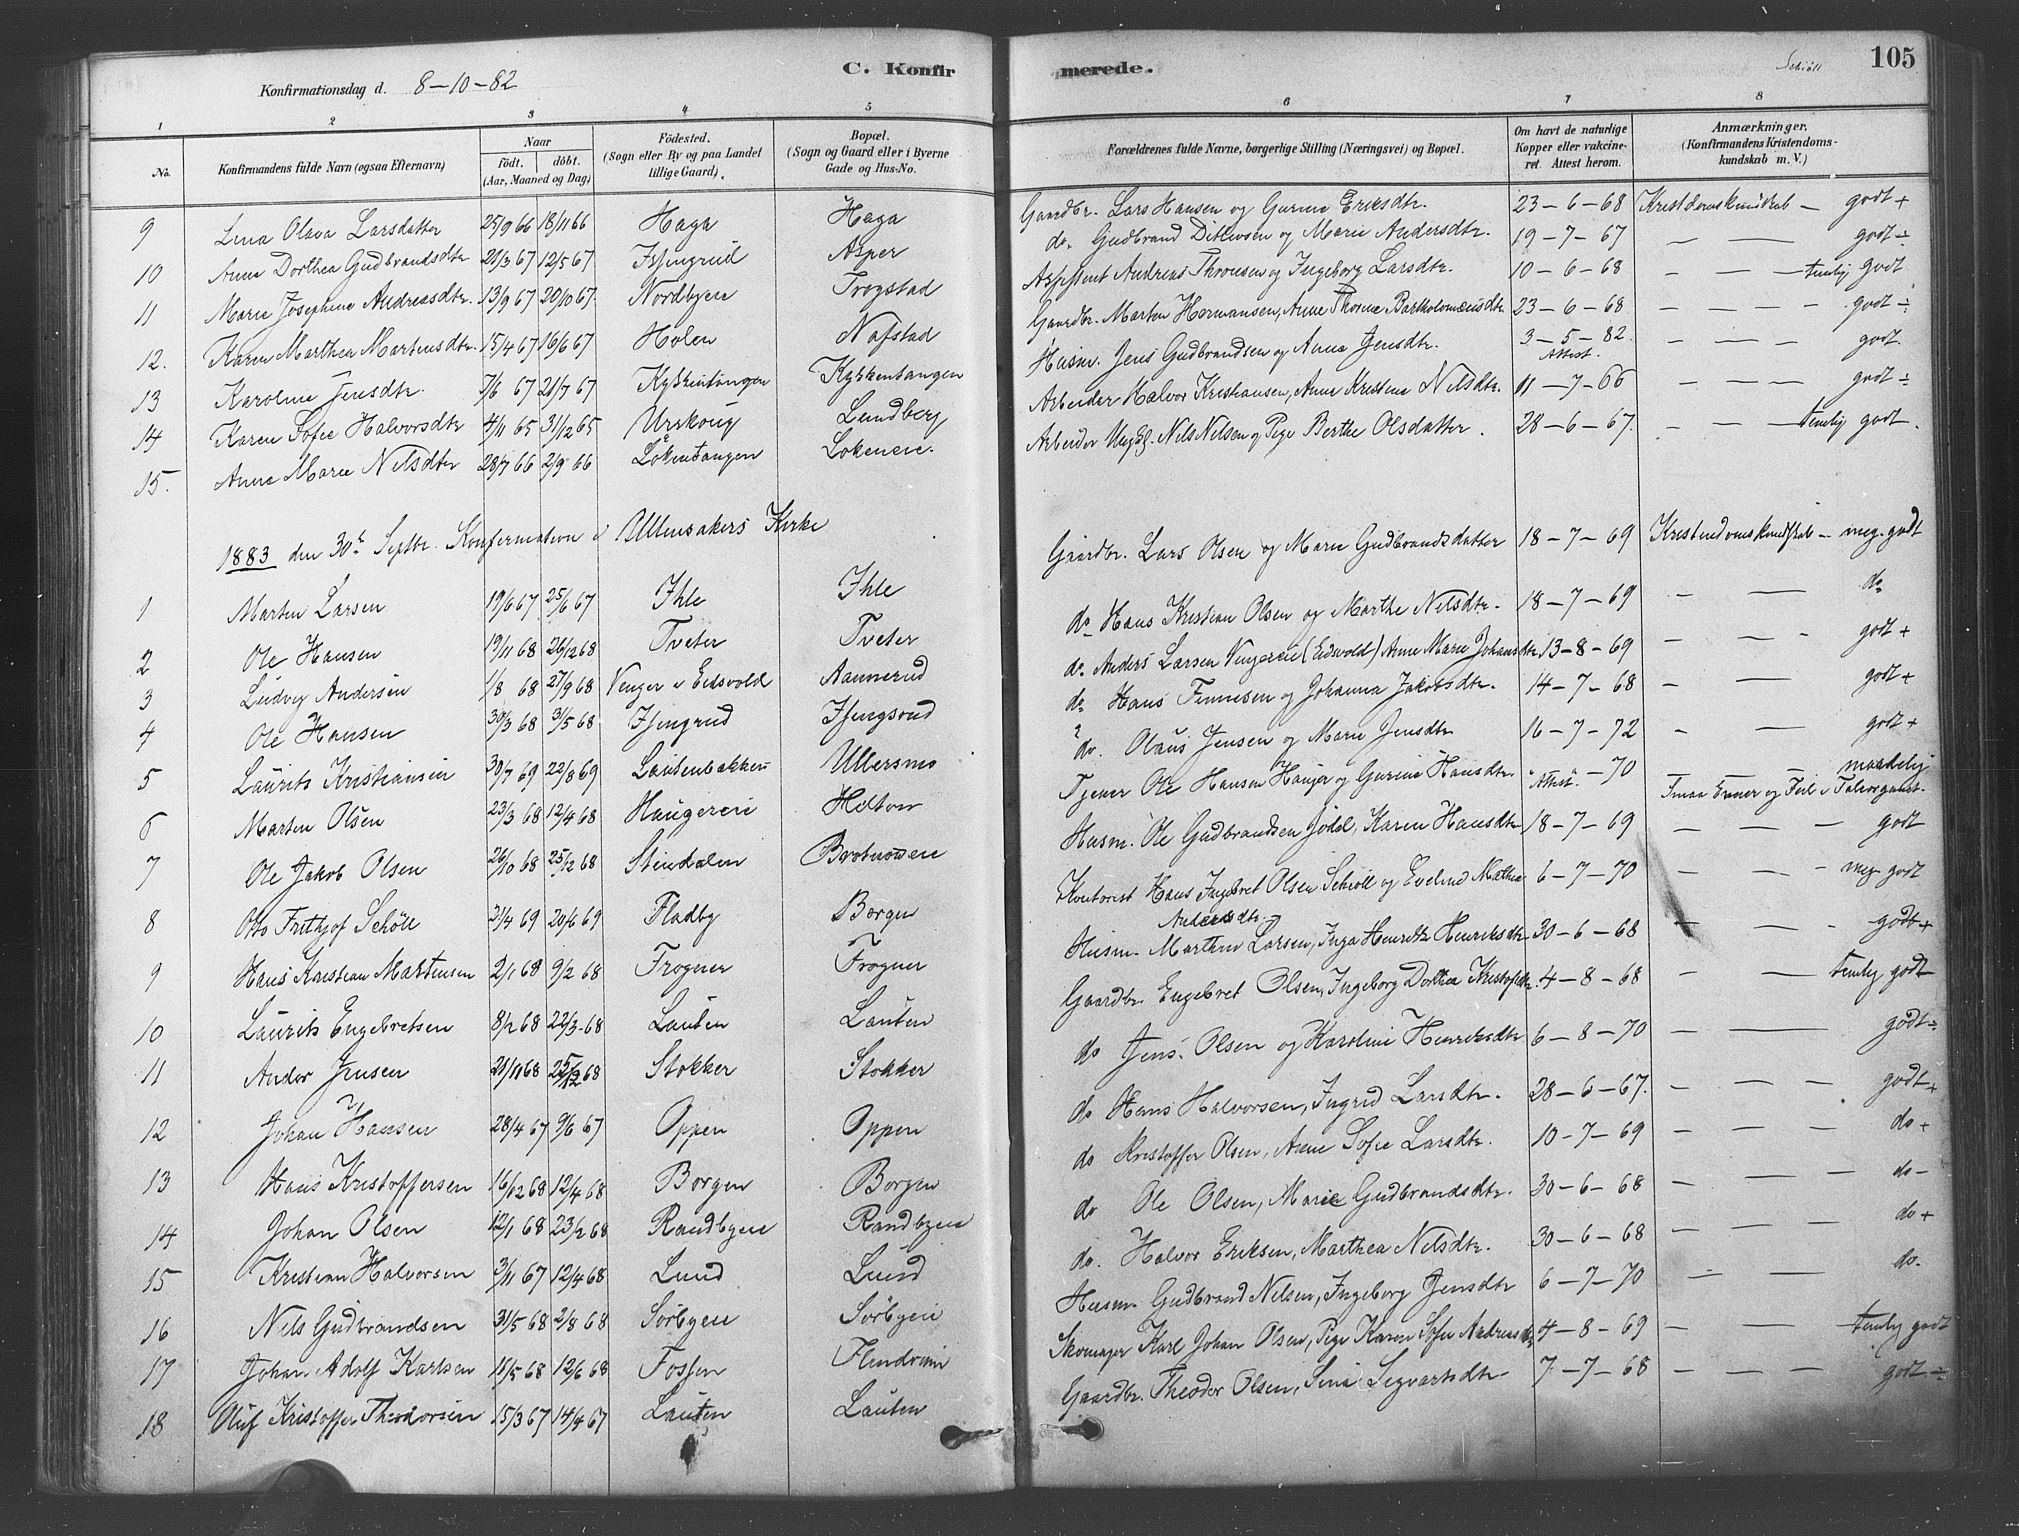 C. Konfirmerede.
Schiøll
105
Konfirmationsdag d. 8-10-82
1 2 3 4 5 6 7 8
No. Konfirmandens fulde Navn (ogsaa Efternavn) Naar født. døbt. (Aar, Maaned og Dag) Födested. (Sogn eller By og paa Landet tillige Gaard). Bopæl. (Sogn og Gaard eller i Byerne Gade og Hus-No. Forældrenes fulde Navne, borgerlige Stilling (Næringsvei) og Bopæl. Om havt de naturlige Kopper eller vakcineret. Attest herom. Anmærkninger. (Konfirmandens Kristendomskundskab m. V.)
9 Lina Olava Larsdatter 25/9 66 18/11 66 Haga Haga Gaardbr. Lars Hansen og Gurine Eriksdtr. 23-6-68 Kristdomskundskab - godt +
10 Anne Dorthea Gudbrandsdtr 21/3 67 12/5 67 Asper do. Gudbrand Ditlevsen og Marie Andersdtr. 19-7-67 — — godt ÷
11 Marie Josephine Andreasdtr. 13/9 67 20/10 67. Nordbyeie Trogstad Assistent Andreas Thronsen og Ingeborg Larsdtr. 10-6-68 — — temlig godt
12. Karen Marthea Martinsdtr. 15/4 67 16/6 67 Holen Nafstad Gaardbr. Marten Hermansen, Anne Thorine Bartholomæusdtr 23-6-68 — — - godt ÷
13 Karoline Jensdtr. 7/6 67 21/7 67 Kykkentangen Kykkentangen Husm. Jens Gudbrandsen og Anna Jensdtr. 3-5-82. Attest. — — — godt
14 Karen Sofie Halvorsdtr 4/11 65 31/12 65 Urskoug Lundberg Arbeider Halvor Kristiansen, Anne Kristine Nilsdtr. 11-7-66 — — — godt ÷
15. Anne Marie Nilsdtr 28/7 66 2/9 66 Lökentangen Lökeneie. Arbeider Ungk. Nils Nilsen og Pige Berthe Olsdatter. 28-6-67. — — — temlig godt.
1883 den 30te Septbr. Konfirmation i Ullensakers Kirke
1 Marten Larsen 19/6 67 25/6 67 Ihle Ihle Gaardbr. Lars Olsen og Marie Gudbrandsdatter 18-7-69 Kristendomskundskab - meg. godt
2 Ole Hansen 19/11 68 26/12 68 Tveter Tveter do. Hans Kristian Olsen og Marthe Nilsdtr. 18-7-69 — — do
3 Ludvig Andersen 1/8 68 27/9 68 Venger i Eidsvold Aannerud do. Anders Larsen Vengereie (Eidsvold) Anne Marie Johansdtr. 13-8-69 — — - godt +
4 Ole Hansen 30/3 68 31/5 68 do. Hans Finnesen og Johanna Jakobsdtr. 14-7-68 — — godt +
5 Laurits Kristiansen 30/7 69 22/8 69 Lautenbakken Ullersmo ? do. Olaus Jensen og Marie Jensdtr 16-7-72 - — godt +
6 Marten Olsen 23/3 68 12/4 68 Haugereie Hilton Tjener Ole Hansen Hauger og Gurine Hansdtr. "Attest." -70 — — - maadelig Smaa Evner og Feil i Taleorganet.
7 Ole Jakob Olsen 26/10 68 25/12 68 Stendalen Husm. Ole Gudbrandsen Jödal, Karen Hansdtr 18-7-69 — — — godt
8 Otto Frithjof Schöll 21/4 69 20/6 69 Fladby Borgen Kontorist Hans Ingebret Olsen Schiöll og Evelind Mathea Andersdtr. 6-7-70 — — - meg godt
9 Hans Kristian Martinsen 2/1 68 9/2 68 Frogner Frogner Husm. Marthin Larsen, Inga Henritte Henriksdtr 30-6-68 - — godt +
10 Laurits Engebretsen 8/2 68 22/3-68 Lauten Lauten Gaardbr. Engebret Olsen, Ingeborg Dorthea Kristofdtr. 4-8-68 — — temlig godt
11 Andor Jensen 21/11 68 25/12 68 Stokker Stokker do Jens Olsen og Karoline Henriksdtr 6-8-70 — — godt ÷
12 Johan Hansen 28/4 67 9/6 67 Oppen Oppen do Hans Halvorsen, Ingrid Larsdtr. 28-6-67. — — — godt +
13 Hans Kristoffersen 16/02 68 12/4 68 Borgen Borgen do Kristoffer Olsen, Anne Sofie Larsdtr. 10-7-69 — — — do +
14 Johan Olsen 12/1 68 23/2 68 Randbyeie Randbyeie do Ole Olsen, Marie Gudbrandsdtr. 30-6-68 — — — do -
15 Kristian Halvorsen 3/11 67 12/4 68 Lund Lund do. Halvor Eriksen, Marthea Nilsdtr. 30-6-68 — — — do +
16 Nils Gudbrandsen 31/5 68 2/8 68 Sörbyeie Sörbyeie Husm. Gudbrand Nilsen, Ingeborg Jensdtr 6-7-70 — — — do.
17 Johan Adolf Karlsen 11/5 68 12/6 68 Fossen Skomager Karl Johan Olsen, Pige Karen Sofie Andreasdtr 4-8-69 — — — temlig godt
18 Oluf Kristoffer Theodorsen 15/3 67 14/4 67 Lauten Lauten Gaardbr. Theodor Olsen, Sina Segvartsdtr 7-7-68 — — — godt ÷